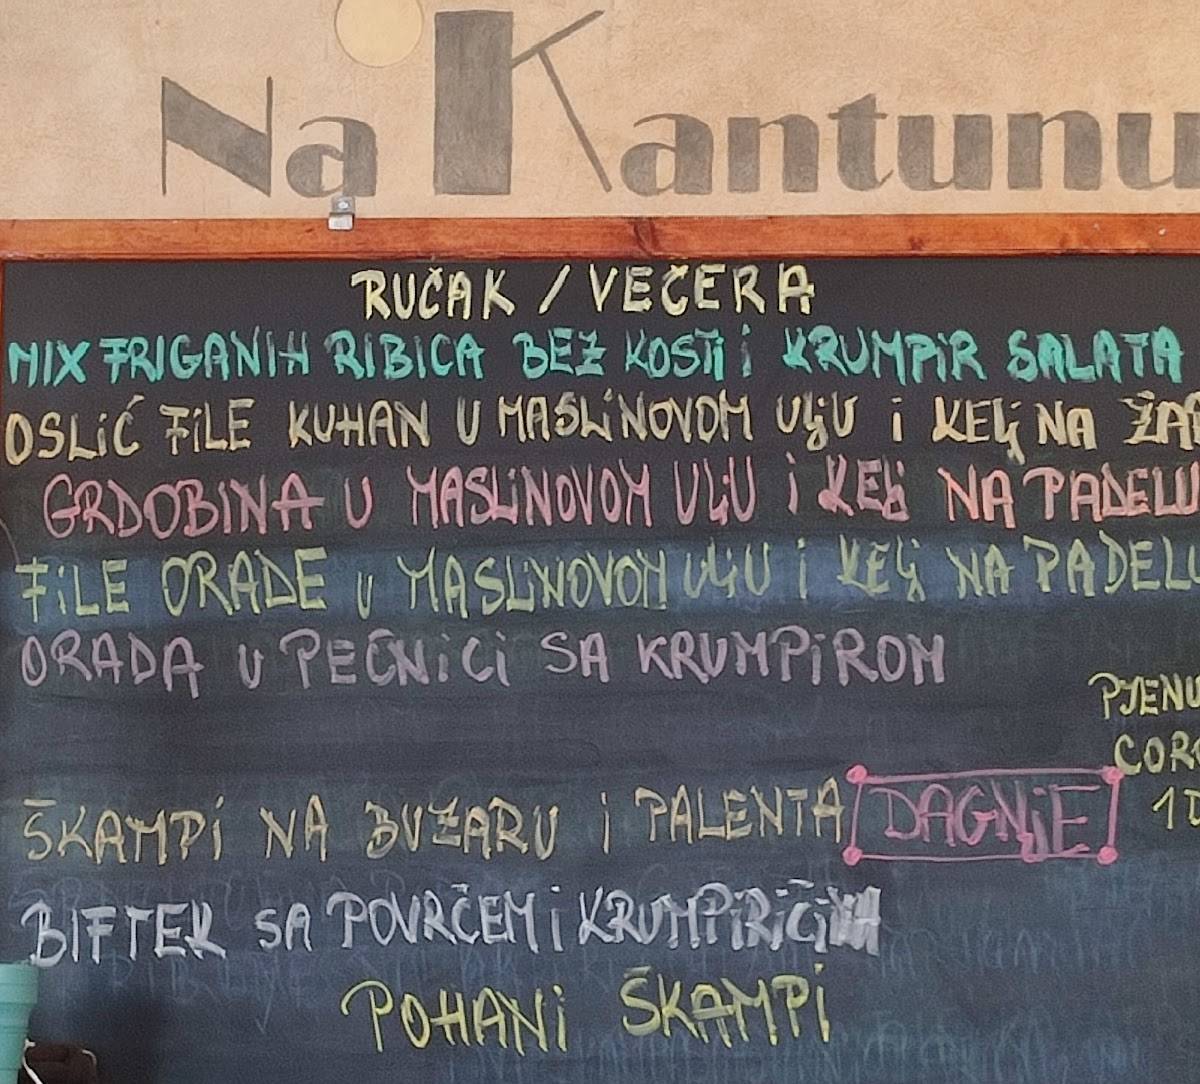 Na Kantunu
RUČAK / VEČERA
MIX FRIGANIH RIBICA BEZ KOSTI i KRUMPiR SALATA
OSLiĆ FiLE KUHAN U MASLiNOVOM ULjU i KELj NA
GRDOBINA U MASLiNOVOM ULjU i KELj NA PADELU
FiLE ORADE U MASLiNOVOM ULjU i KELj NA PADELU
ORADA U PEČNiCi SA KRUMPiROM
PJENU
ŠKAMPi NA BUZARU i PALENTA DAGNjE
BIFTEK SA POVRČEM i KRUMPiRiČiMA
POHANi ŠKAMPi